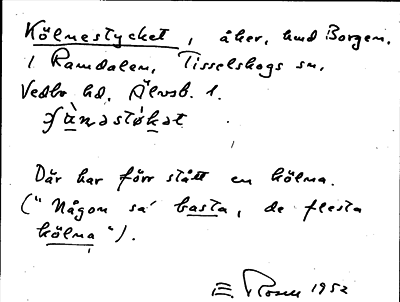 Kölnestycket, åker, hmd Borgen.
i Ramdalen, Tisselskogs sn,
Vedbo hd, Älvsb. l.
Där har förr stått en kölna.
("Någon sa basta, de flesta
kölna").
E. Rosen 1952